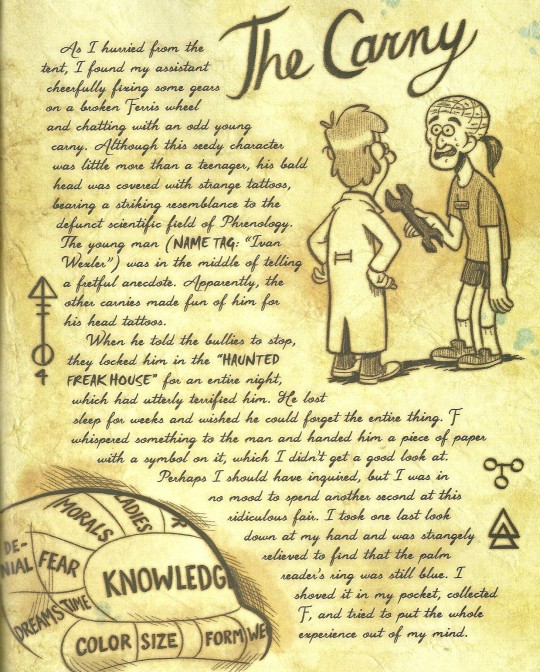 The Carny
As I hurried from the
tent, I found my assistant
cheerfully fixing some gears
on a broken Ferris wheel
and chatting with an odd young
carny. Although this seedy character
was little more than a teenager, his bald
head was covered with strange tattoos,
bearing a striking resemblance to the
defunct scientific field of Phrenology.
The young man (NAME TAG: "Ivan
Wexler") was in the middle of telling
a fretful anecdote. Apparently, the
other carnies made fun of him for
his head tattoos.
When he told the bullies to stop,
they locked him in the "HAUNTED
FREAK HOUSE" for an entire night,
which had utterly terrified him. He lost
sleep for weeks and wished he could forget the entire thing. F
whispered something to the man and handed him a piece of paper
with a symbol on it, which I didn't get a good look at.
Perhaps I should have inquired, but I was in
no mood to spend another second at this
ridiculous fair. I took one last look
down at my hand and was strangely
relieved to find that the palm
reader's ring was still blue. I
shoved it in my pocket, collected
F, and tried to put the whole
experience out of my mind.
MORALS
LADIES
DE-
NIAL
FEAR
KNOWLEDG
DREAMS
TIME
COLOR
SIZE
FORM
WE